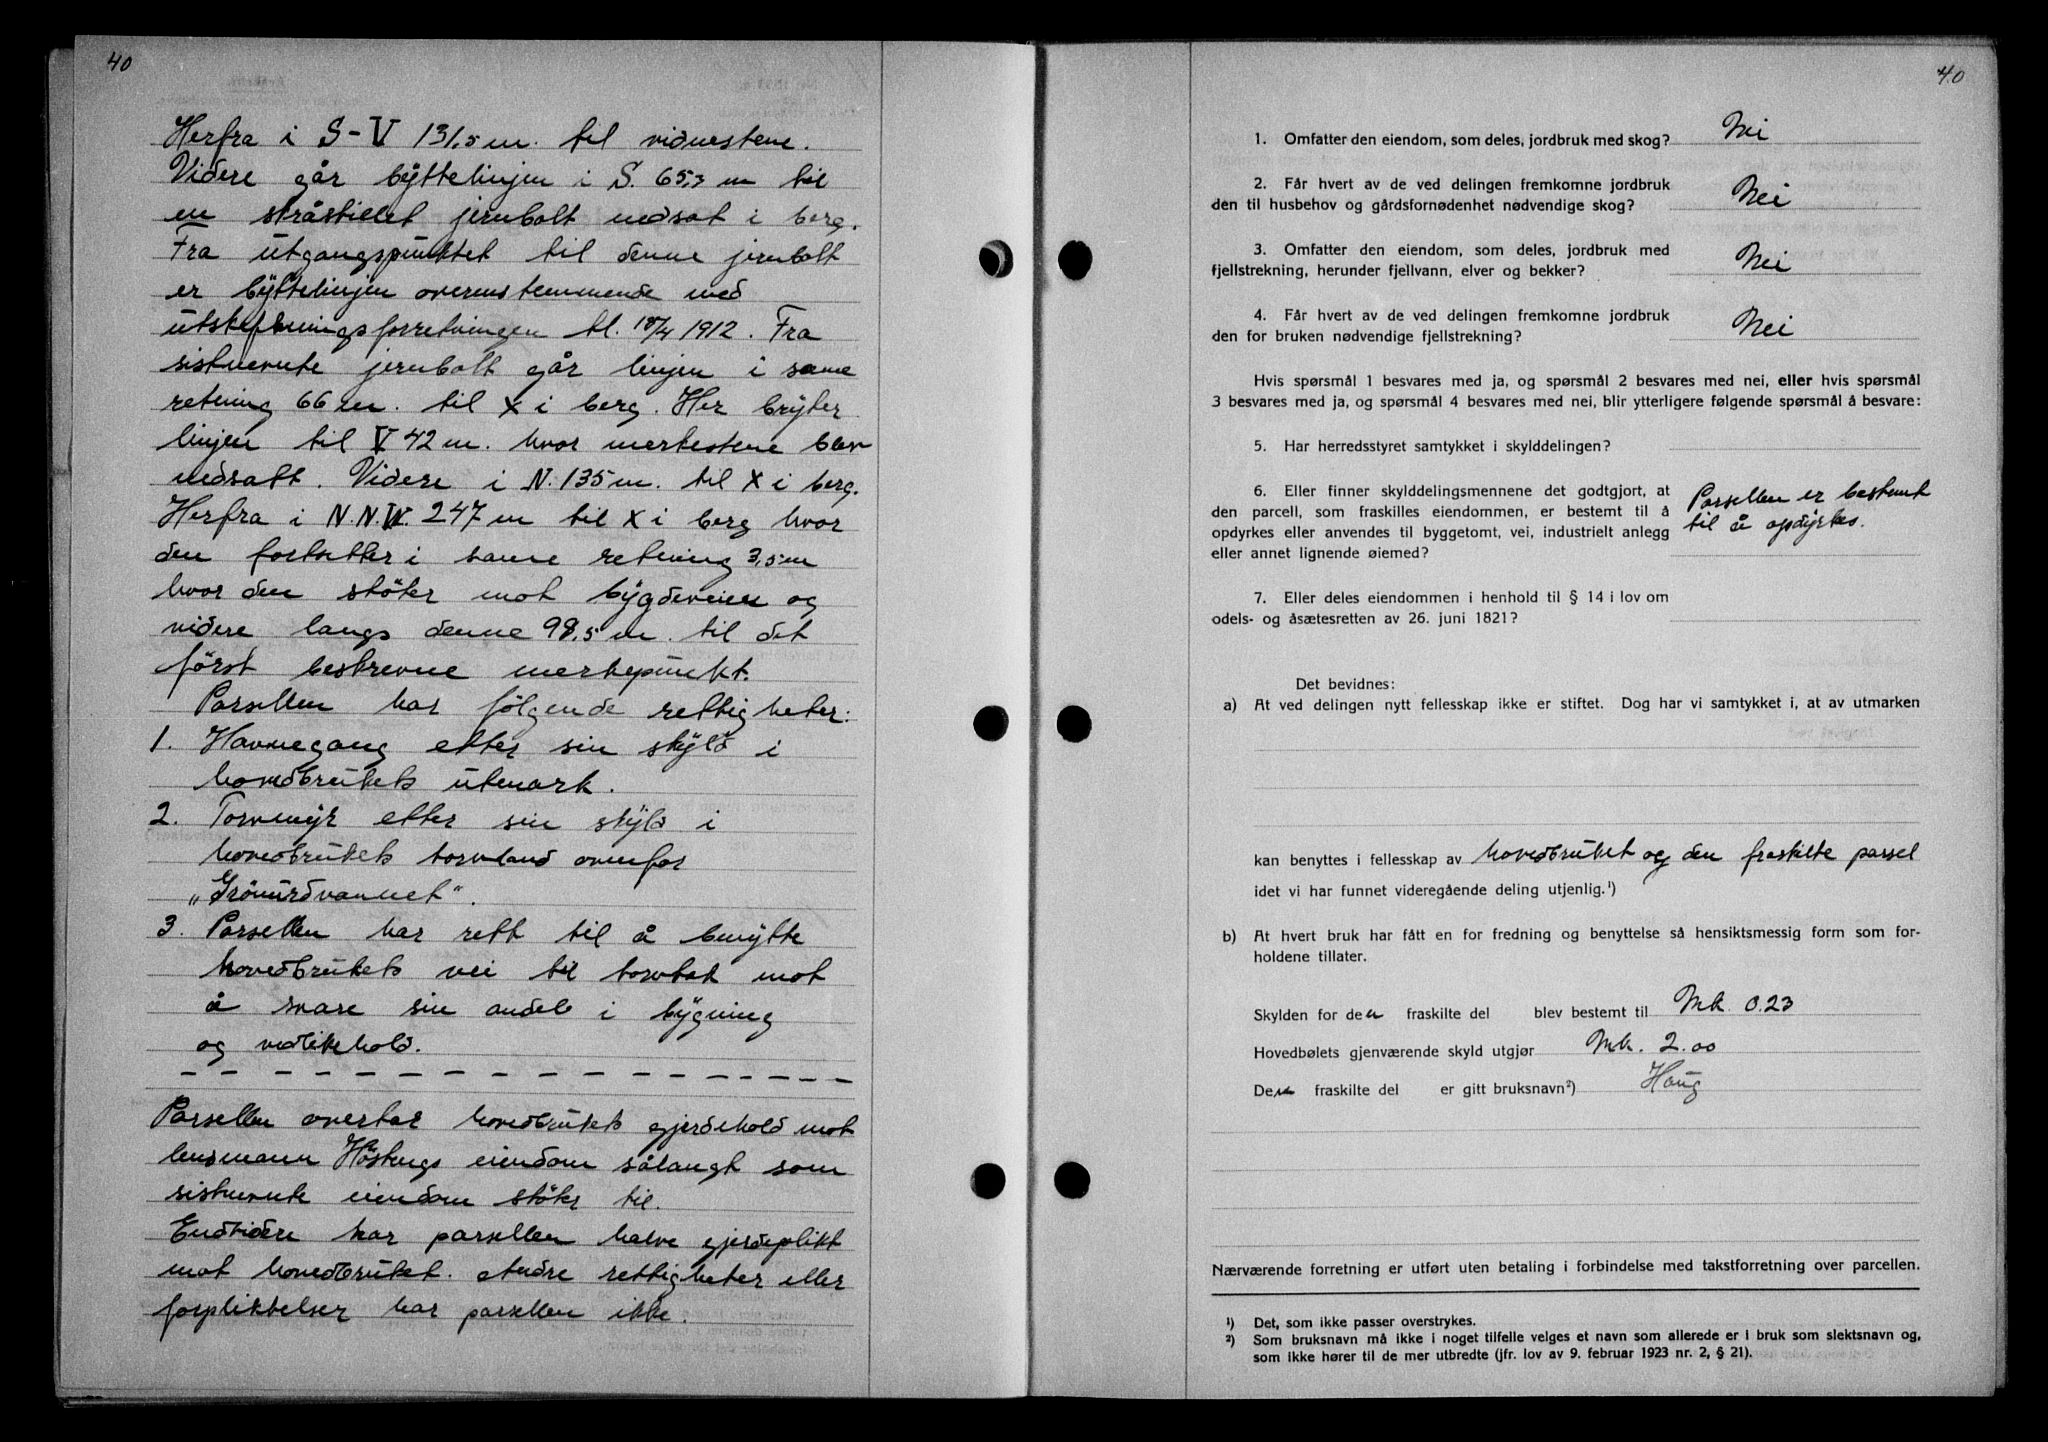 40
Herfra i S-V 131,5 m. til vidnestene.
Videre går byttelinjen i S. 65,3 m til
en stråstillet jernbolt nedsat i berg.
Fra utgangspunktet til denne jernbolt
er byttelinjen overensstemmende med
utskiftningsforretningen tl. 18/4 1912. Fra
sistnevnte jernbolt går linjen i same
retning 66 m. til X i berg. Her bryter
linjen til V 42 m. hvor merkestene blev
nedsatt. Videre i N. 135 m. til X i berg.
Herfra i N.N.V. 247 m til X i berg hvor
den fortsetter i samme retning 3,5 m
hvor den støter mot bygdeveien og
videre langs denne 98,5 m. til det
først beskrevne merkepunkt.
Parsellen har følgende rettigheter:
1. Havnegang efter sin skyld i
hovedbrukets utmark.
2. Torvmyr efter sin skyld i
hovedbrukets torvland ovenfor
„Grönurdvannet“.
3. Parsellen har rett til å benytte
hovedbrukets vei til torvtak mot
å svare sin andel i bygning
og vedlikehold.
Parsellen overtar hovedbrukets gjerdehold mot
lensmann Høstengs eiendom sålangt som
sistnevnte eiendom støter til.
Endvidere har parsellen halve gjerdeplikt
mot hovedbruket. Andre rettigheter eller
forpliktelser har parsellen ikke.
40
1. Omfatter den eiendom, som deles, jordbruk med skog? Nei
2. Får hvert av de ved delingen fremkomne jordbruk
den til husbehov og gårdsfornødenhet nødvendige skog? Nei
3. Omfatter den eiendom, som deles, jordbruk med
fjellstrekning, herunder fjellvann, elver og bekker? Nei
4. Får hvert av de ved delingen fremkomne jordbruk
den for bruken nødvendige fjellstrekning? Nei
Hvis spørsmål 1 besvares med ja, og spørsmål 2 besvares med nei, eller hvis spørsmål
3 besvares med ja, og spørsmål 4 besvares med nei, blir ytterligere følgende spørsmål å besvare:
5. Har herredsstyret samtykket i skylddelingen?
6. Eller finner skylddelingsmennene det godtgjort, at
den parcell, som fraskilles eiendommen, er bestemt til å
opdyrkes eller anvendes til byggetomt, vei, industrielt anlegg
eller annet lignende øiemed?
Parsellen er bestemt
til å opdyrkes.
7. Eller deles eiendommen i henhold til § 14 i lov om
odels- og åsætesretten av 26. juni 1821?
Det bevidnes:
a) At ved delingen nytt fellesskap ikke er stiftet. Dog har vi samtykket i, at av utmarken
kan benyttes i fellesskap av hovedbruket og den fraskilte parsel
idet vi har funnet videregående deling utjenlig.¹)
b) At hvert bruk har fått en for fredning og benyttelse så hensiktsmessig form som for-
holdene tillater.
Skylden for den fraskilte del blev bestemt til Mk. 0.23
Hovedbølets gjenværende skyld utgjør Mk. 2.00
Den fraskilte del er gitt bruksnavn²) Haug
Nærværende forretning er utført uten betaling i forbindelse med takstforretning over parcellen.
¹) Det, som ikke passer overstrykes.
²) Som bruksnavn må ikke i noget tilfelle velges et navn som allerede er i bruk som slektsnavn og,
som ikke hører til de mer utbredte (jfr. lov av 9. februar 1923 nr. 2, § 21).